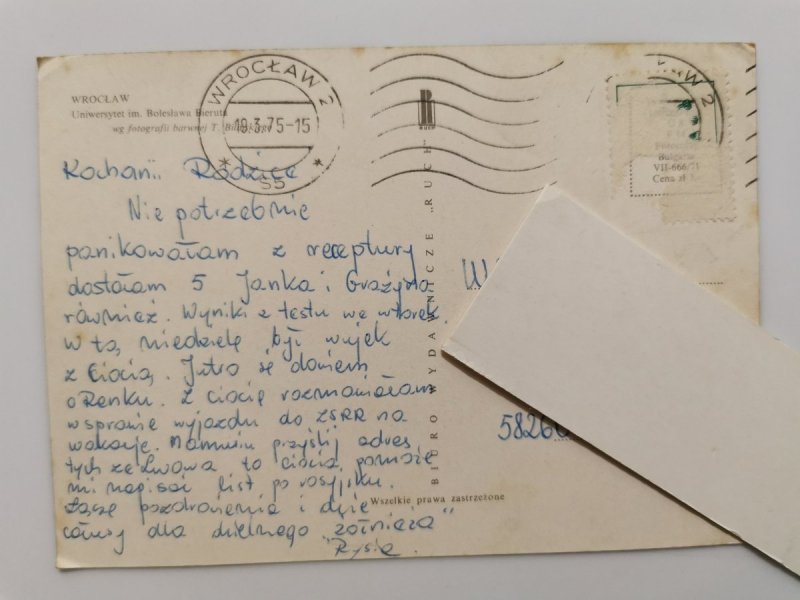 WROCŁAW
Uniwersytet im. Bolesława Bieruta
wg fotografii barwnej T.
WROCŁAW 2
19.3.75-15
* S5 *
RUCH
Kochanii Rodzice
Nie potrzebnie
panikowałam z receptury
dostałam 5 Janka i Grażyna
również. Wyniki z testu we wtorek.
W tą niedzielę był wujek
z Ciocią. Jutro się dowiem
o Renku. Z ciocią rozmawiałam
w sprawie wyjazdu do ZSRR na
wakacje. Mamusiu przyślij adres
tych ze Lwowa to ciocia pomoże
mi napisać list po rosyjsku.
Łączę pozdrowienia i duże
całusy dla dzielnego „żołnierza"
Rysia.
BIURO WYDAWNICZE „RUCH"
Bułgaria
VII-666/71
Cena zł
W 2
5826
Wszelkie prawa zastrzeżone